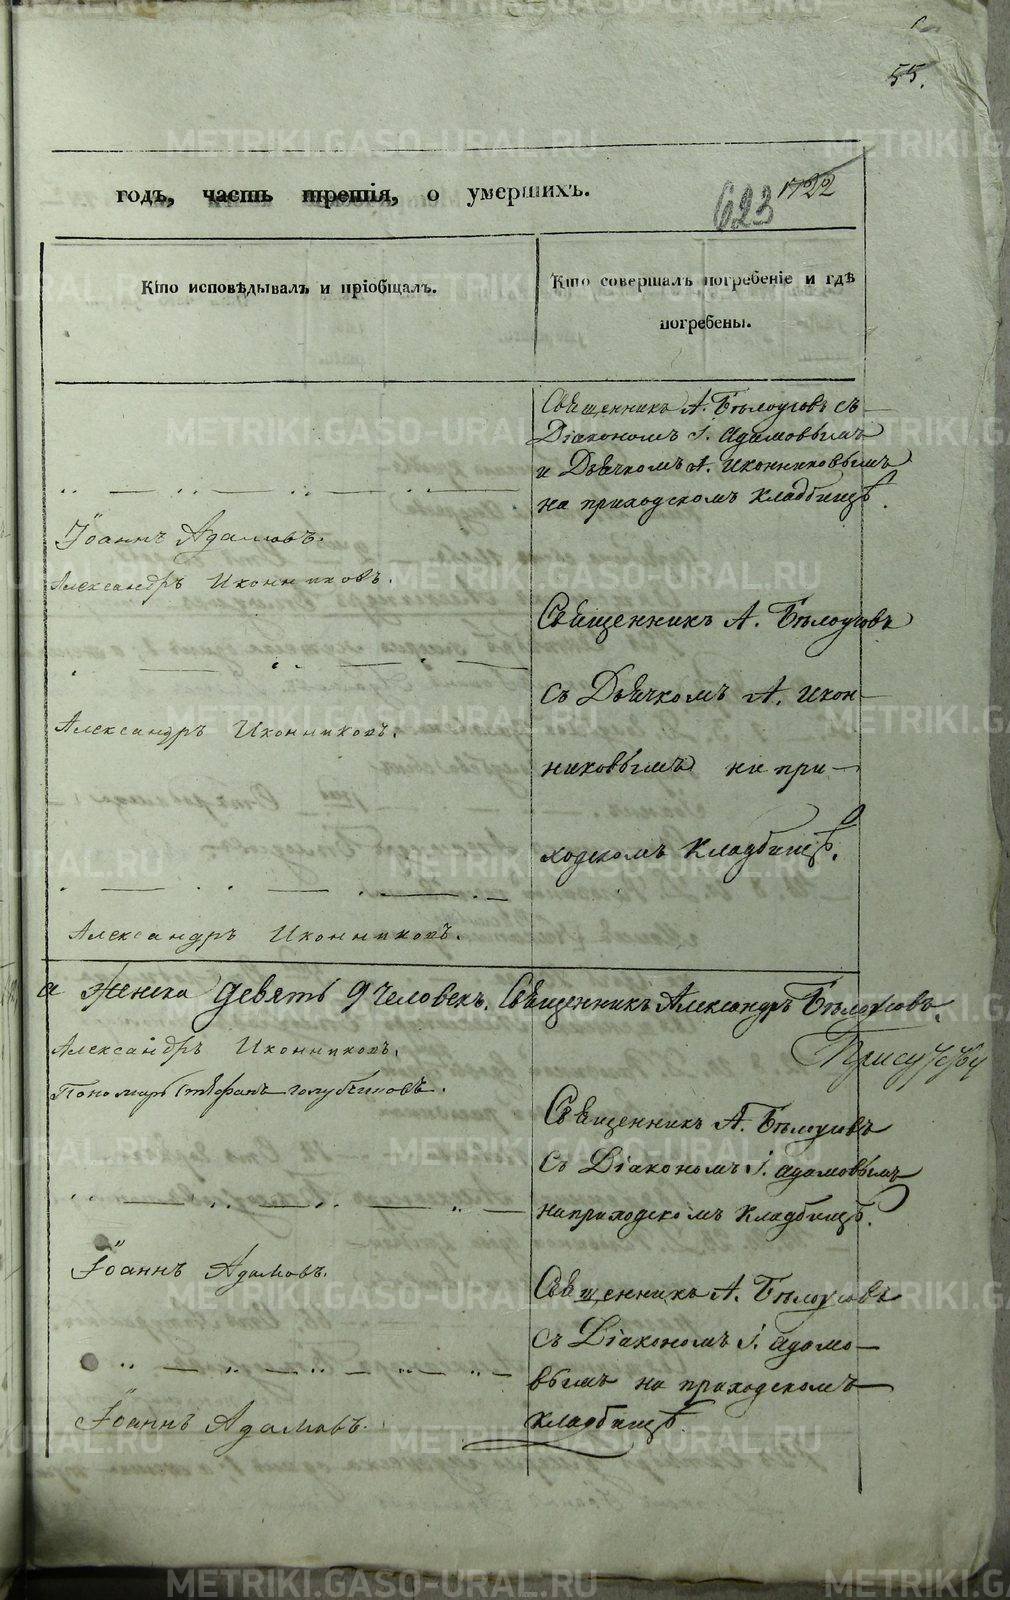 55.
годъ, часть третія, о умершихъ.
623 1722
Кто исповѣдывалъ и пріобщалъ.
Кто совершалъ погребеніе и гдѣ
погребены.
Священникъ А. Бѣлоусовъ съ
Діакономъ І. Адамовымъ
и Дьячкомъ А. Иконниковымъ
на приходскомъ кладбищѣ.
Іоаннъ Адамовъ.
Александръ Иконниковъ.
Священникъ А. Бѣлоусовъ
съ Дьячкомъ А. Икон-
никовымъ на при-
ходскомъ кладбищѣ.
Александръ Иконниковъ.
Александръ Иконниковъ.
а женска девять 9 человекъ. Священникъ Александръ Бѣлоусовъ.
Александръ Иконниковъ.
Пономарь Стефанъ Голубчиковъ.
Священникъ А. Бѣлоусовъ
съ Діакономъ І. Адамовымъ
на приходскомъ кладбищѣ.
Іоаннъ Адамовъ.
Священникъ А. Бѣлоусовъ
съ Діакономъ І. Адамо-
вымъ на приходскомъ
кладбищѣ.
Іоаннъ Адамовъ.
METRIKI.GASO-URAL.RU